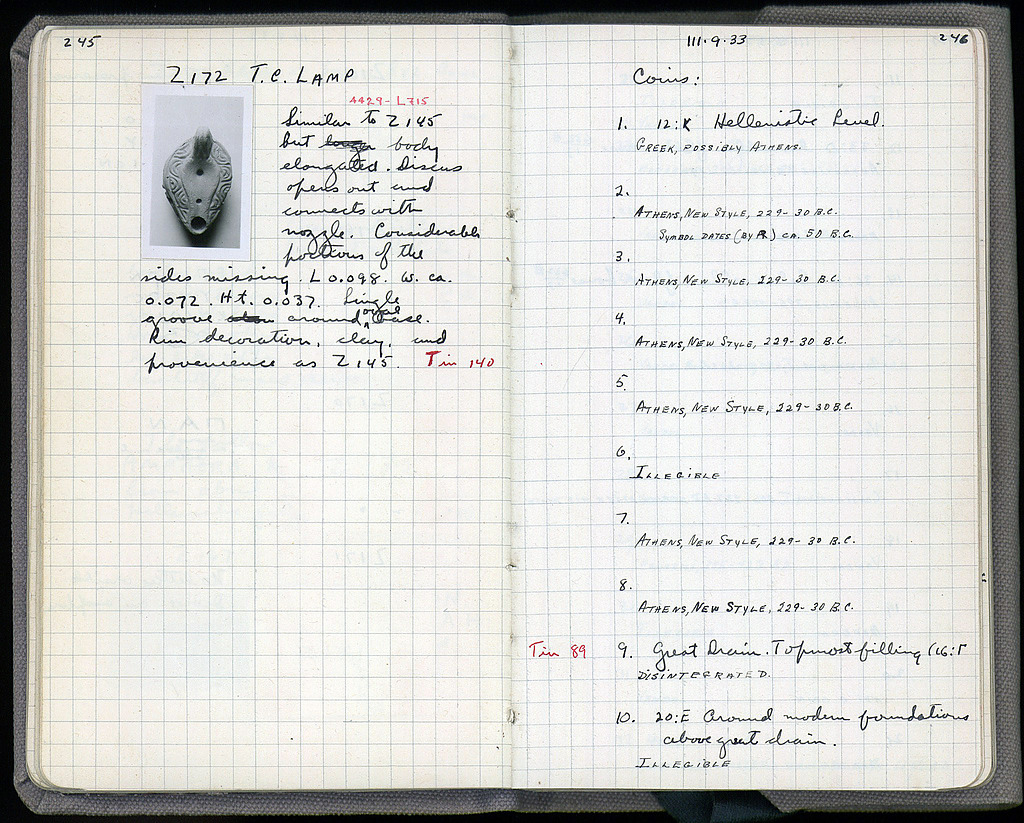 245
Z 172 T.C. LAMP
4429-L715
Similar to Z 145
but longer body
elongated. Discus
opens out and
connects with
nozzle. Considerable
portions of the
sides missing. L 0.098. W. ca.
0.072. Ht. 0.037. Single
groove around oval base.
Rim decoration, clay, and
provenience as Z 145. Tin 140
III.9.33
246
Coins:
1. 12:K Hellenistic Level.
GREEK, POSSIBLY ATHENS.
2.
ATHENS, NEW STYLE, 229-30 B.C.
SYMBOL DATES (BY R) CA. 50 B.C.
3.
ATHENS, NEW STYLE, 229-30 B.C.
4.
ATHENS, NEW STYLE, 229-30 B.C.
5.
ATHENS, NEW STYLE, 229-30 B.C.
6.
ILLEGIBLE
7.
ATHENS, NEW STYLE, 229-30 B.C.
8.
ATHENS, NEW STYLE, 229-30 B.C.
Tin 89 9. Great Drain. Topmost filling (16:Γ
DISINTEGRATED.
10. 20:E Around modern foundations
above great drain.
ILLEGIBLE